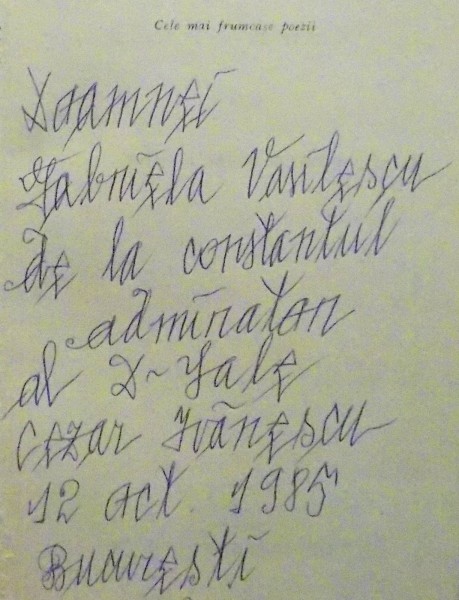 Cele mai frumoase poezii
Doamnei
Gabriela Vasilescu
de la constantul
admirator
al D~Sale
Cezar Ivănescu
12 oct. 1985
București